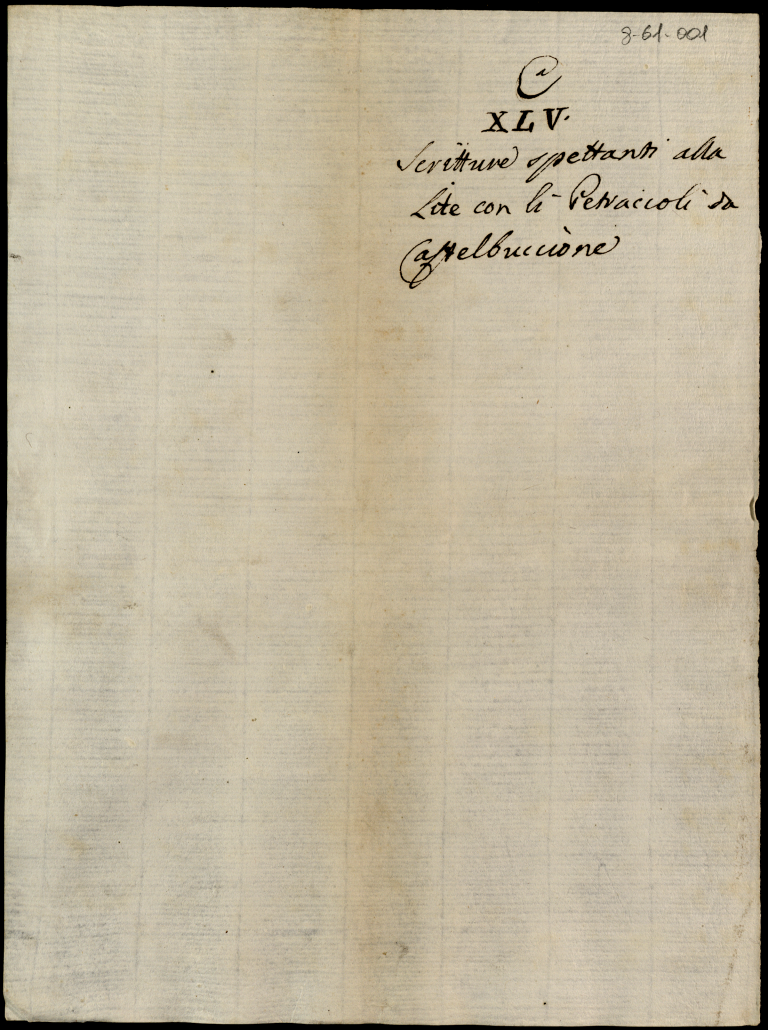 8-61-001
Ca
XLV.
Scritture spettanti alla
Lite con li Petraccioli da
Castelbuccione